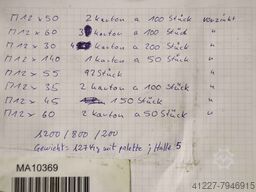 M12 x 50 2 karton a 100 Stück verzinkt
M12 x 60 3 karton a 100 Stück "
M12 x 30 4 karton a 200 Stück "
M12 x 140 1 karton a 50 Stück "
M12 x 55 92 Stück "
M12 x 35 2 karton a 100 Stück "
M12 x 45 150 Stück "
M12 x 60 2 karton a 50 Stück "
1200 / 800 / 200
Gewicht = 127 kg mit palette ; Halle 5
MA10369
41227-7946915